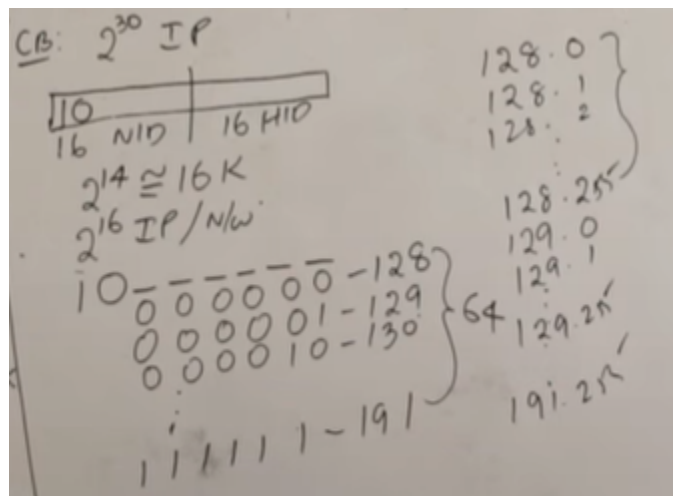 CB: 2^30 IP
10
16 NID | 16 HID
2^14 ≅ 16K
2^16 IP/N/W
10 _ _ _ _ _ _
0 0 0 0 0 0 - 128
0 0 0 0 0 1 - 129
0 0 0 0 1 0 - 130
⋮
1 1 1 1 1 1 - 191
} 64
128.0
128.1
128.2
⋮
128.255
129.0
129.1
⋮
129.255
191.255